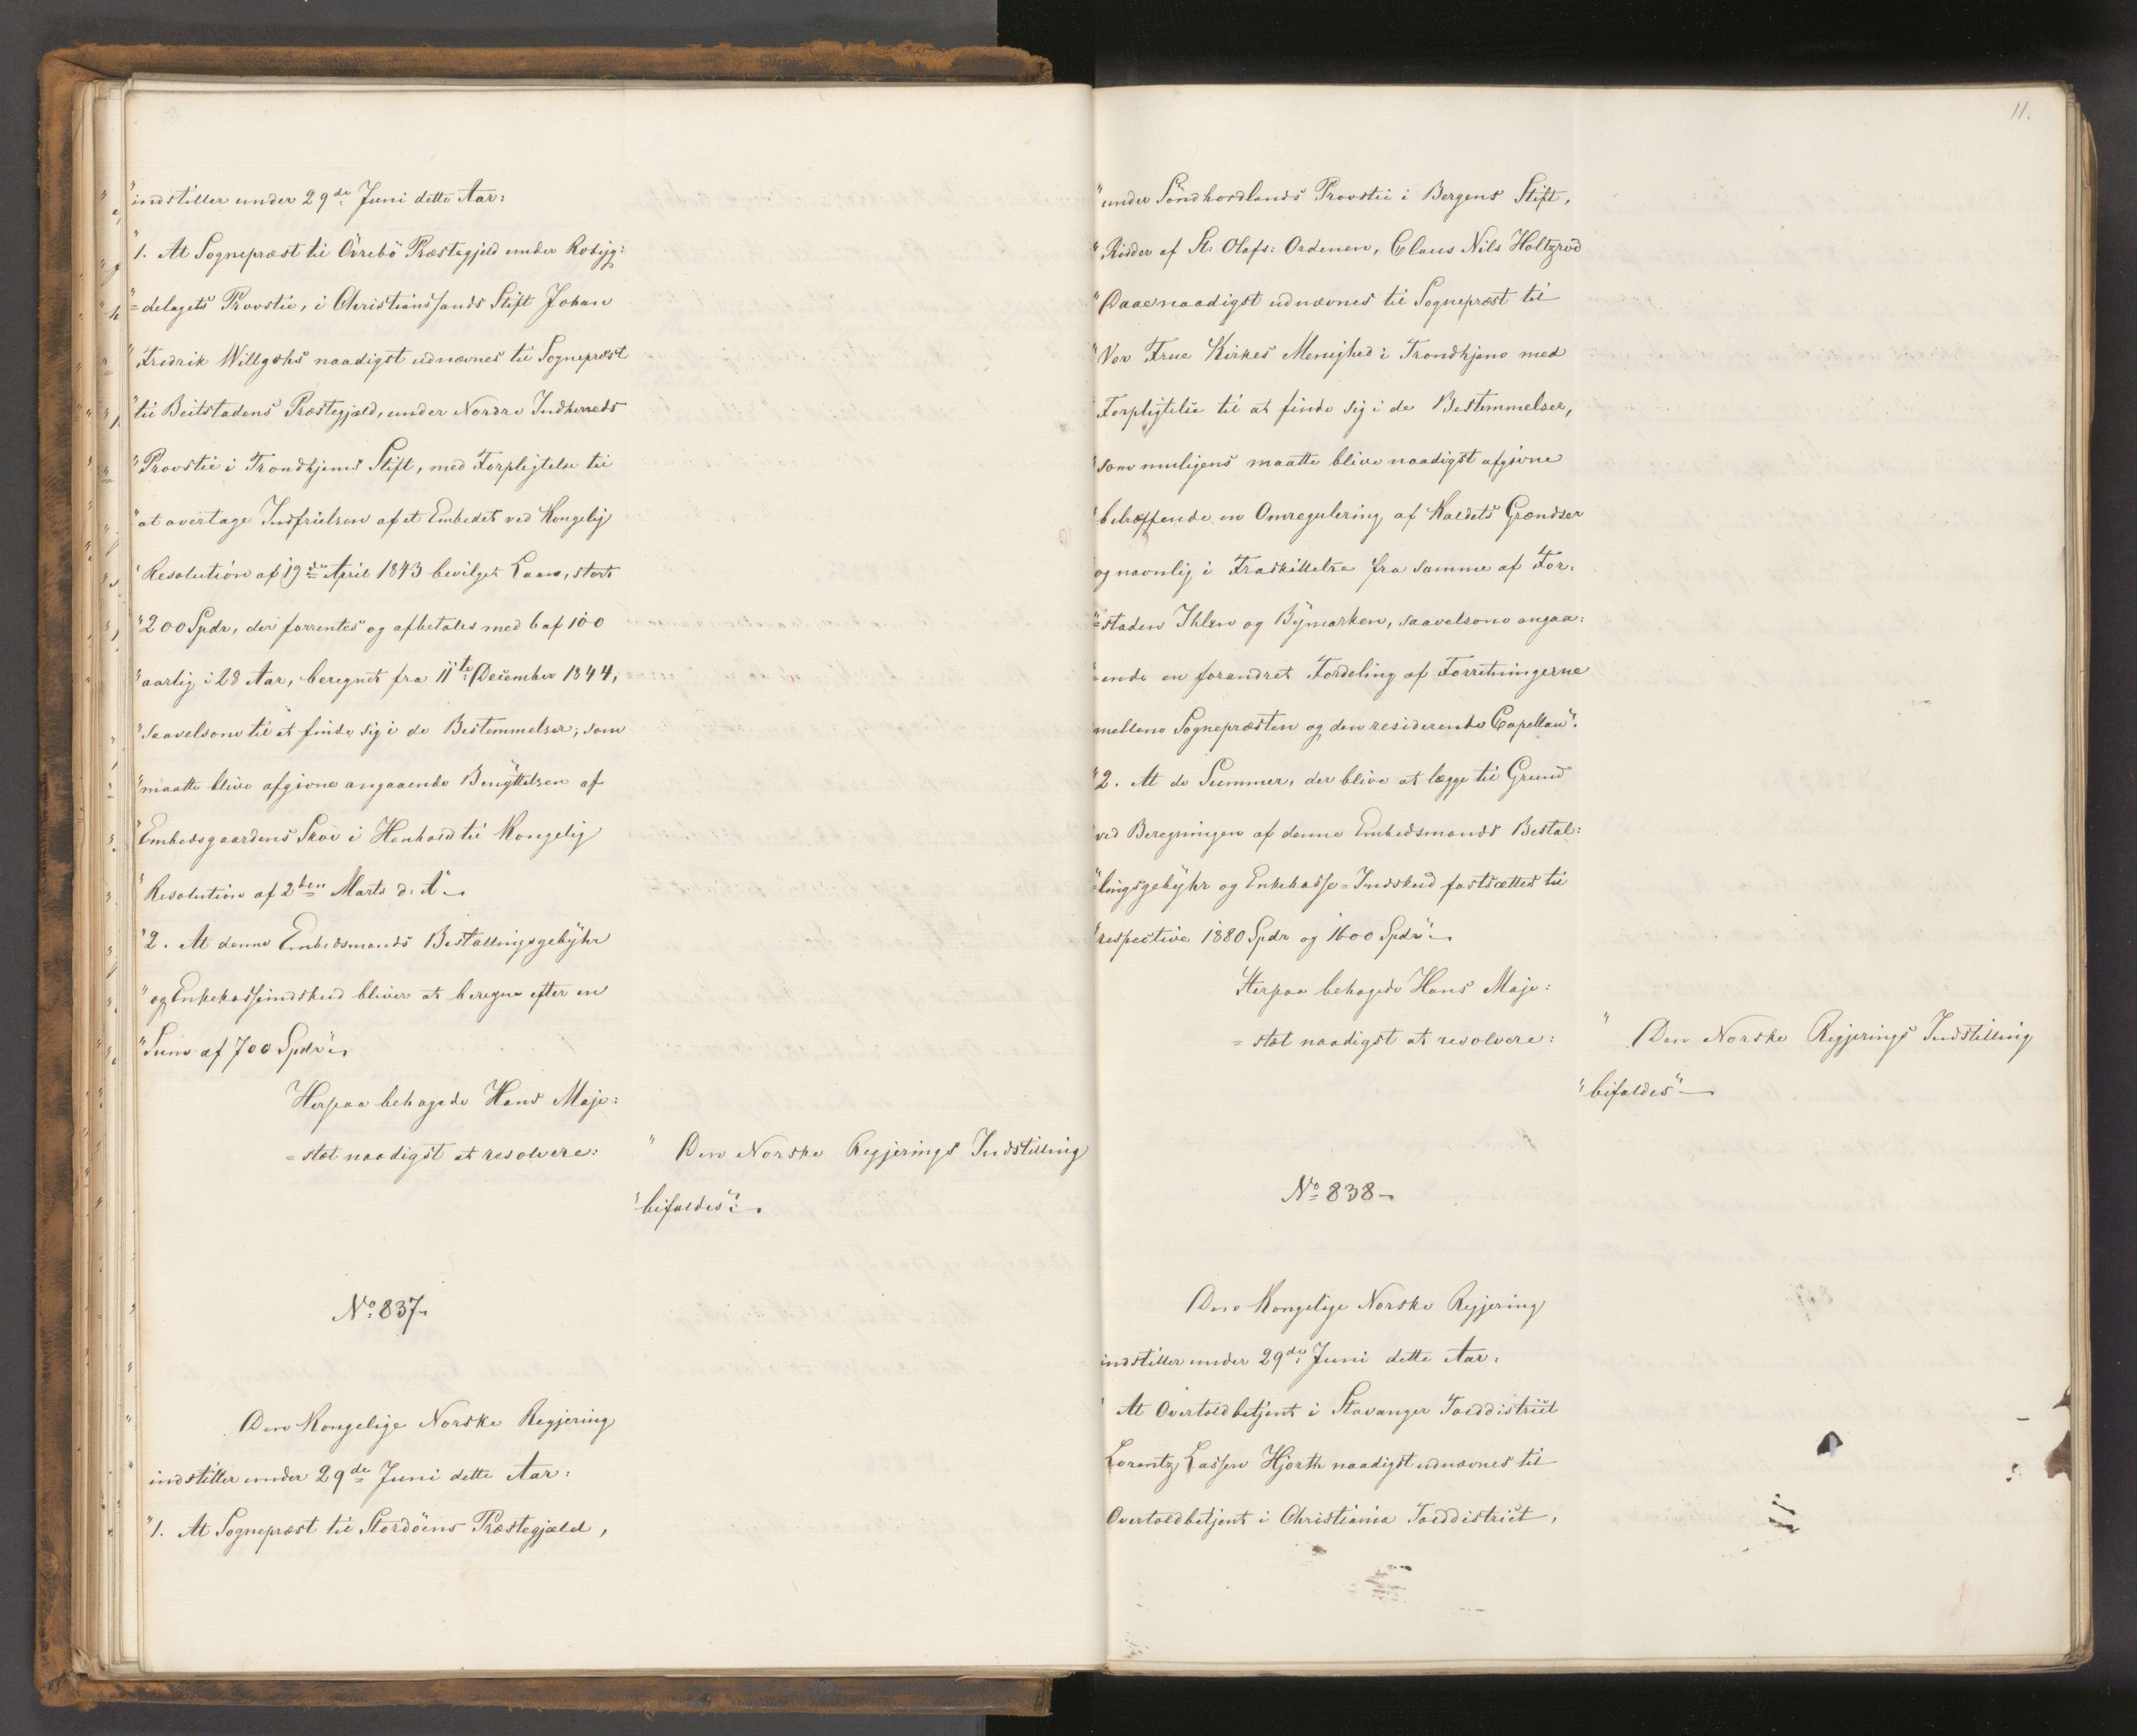 "indstiller under 29de Juni dette Aar:
"1. At Sognepræst til Örrebö Præstegjeld under Robyg:
"=delagets Provstie, i Christianssands Stift Johan
"Fredrik Willgohs naadigst udnævnes til Sognepræst
"til Beitstadens Præstegjæld, under Nordre Indherreds
"Provstie i Trondhjems Stift, med Forpligtelse til
"at overtage Indfrielsen af et Embedet ved Kongelig
"Resolution af 19de April 1843 bevilget Laan, stort
"200 Spdr, der forrentes og afbetales med 6 af 100
"aarlig i 28 Aar, beregnet fra 11te December 1844,
"saavelsom til at finde sig i de Bestemmelser, som
"maatte blive afgivne angaaende Benyttelsen af
"Embedsgaardens Skov i Henhold til Kongelig
"Resolution af 2den Marts d: A"
"2. At denne Embedsmands Bestallingsgebyhr
"og Enkekasseindskud bliver at beregne efter en
"Sum af 700 Spdr"
Herpaa behagede Hans Maje:
=stæt naadigst at resolvere:
" Den Norske Regjerings Indstilling
"bifaldes".
No 837
Den Kongelige Norske Regjering
indstiller under 29de Juni dette Aar:
"1. At Sognepræst til Stordöens Præstegjæld,
11.
"under Söndhordlands Provstie i Bergens Stift,
"Ridder af St: Olafs: Ordenen, Claus Nils Holtzrød
"Daae naadigst udnævnes til Sognepræst til
"Vor Frue Kirkes Menighed i Trondhjem med
"Forpligtelse til at finde sig i de Bestemmelser,
"som muligens maatte blive naadigst afgivne
"betræffende en Omregulering af Kaldets Grændser
"og navnlig i Fraskillelse fra samme af For:
"=staden Ihlen og Bymarken, saavelsom angaa:
"=ende en forandret Fordeling af Forretningerne
"mellem Sognepræsten og den residerende Capellan".
"2. At de Summer, der blive at lægge til Grund
"ved Beregningen af denne Embedsmands Bestal:
"=lingsgebyhr og Enkekasse=Indskud fastsættes til
"respective 1880 Spdr og 1600 Spdr"
Herpaa behagede Hans Maje:
=stæt naadigst at resolvere:
" Den Norske Regjerings Indstilling
"bifaldes"
No 838
Den Kongelige Norske Regjering
indstiller under 29de Juni dette Aar:
" At Overtoldbetjent i Stavanger Tolddistrict
Lorentz Lassen Hjorth naadigst udnævnes til
Overtoldbetjent i Christiania Tolddistrict,